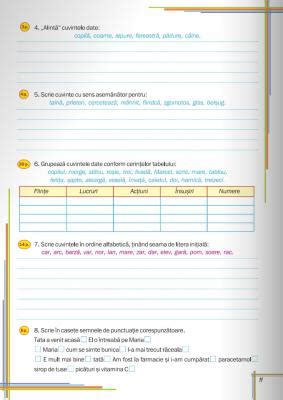 3p. 4. „Alintă” cuvintele date:
copilă, coame, iepure, fereastră, pădure, câine.
4p. 5. Scrie cuvinte cu sens asemănător pentru:
taină, prieten, cercetează, mâhnit, fiindcă, zgomotos, gras, belșug.
6. Grupează cuvintele date conform cerințelor tabelului:
copilul, merge, stilou, roșie, trei, livadă, Marcel, scrie, mare, tablou,
fetița, șapte, aleargă, veselă, învață, caietul, doi, harnică, treizeci.
Ființe Lucruri Acțiuni Însușiri Numere
7. Scrie cuvintele în ordine alfabetică, ținând seama de litera inițială:
car, arc, barză, var, nor, lan, mare, zar, dar, elev, gară, pom, soare, rac.
8. Scrie în casete semnele de punctuație corespunzătoare.
Tata a venit acasă El o întreabă pe Maria
Maria cum se simte bunica I-a mai trecut răceala
E mult mai bine tată Am fost la farmacie și i-am cumpărat paracetamol
sirop de tuse picături și vitamina C